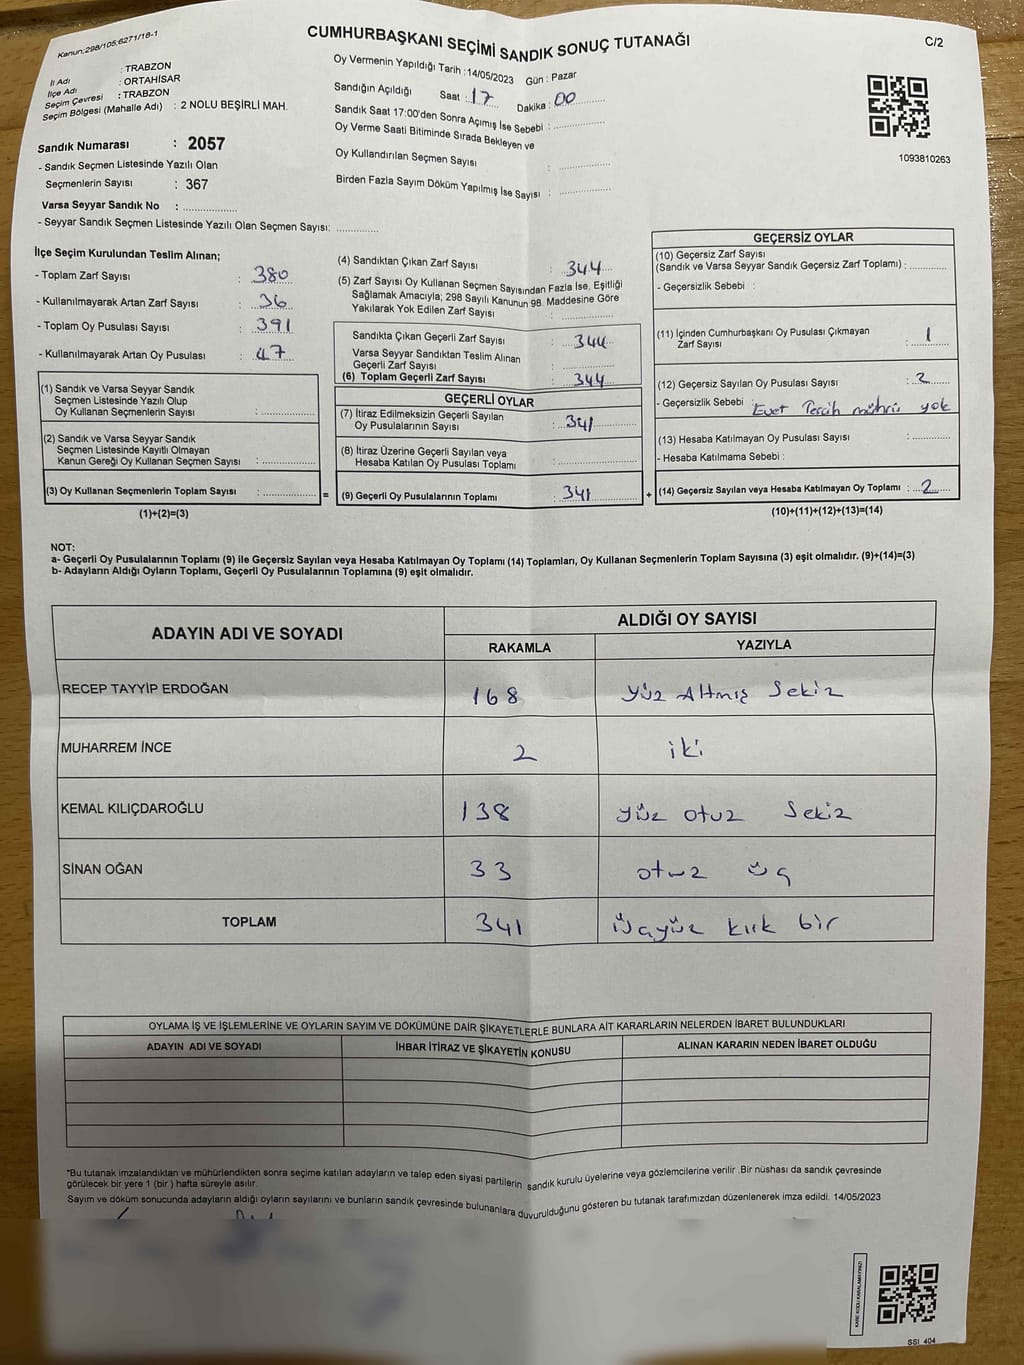 Kanun:298/105;6271/18-1
CUMHURBAŞKANI SEÇİMİ SANDIK SONUÇ TUTANAĞI
C/2
İl Adı : TRABZON
İlçe Adı : ORTAHİSAR
Seçim Çevresi : TRABZON
Seçim Bölgesi (Mahalle Adı) : 2 NOLU BEŞİRLİ MAH.
Oy Vermenin Yapıldığı Tarih :14/05/2023 Gün : Pazar
Sandığın Açıldığı Saat : 17 Dakika : 00
Sandık Saat 17:00'den Sonra Açımış İse Sebebi :
Oy Verme Saati Bitiminde Sırada Bekleyen ve
Oy Kullandırılan Seçmen Sayısı :
Birden Fazla Sayım Döküm Yapılmış İse Sayısı :
1093810263
Sandık Numarası : 2057
- Sandık Seçmen Listesinde Yazılı Olan
Seçmenlerin Sayısı : 367
Varsa Seyyar Sandık No :
- Seyyar Sandık Seçmen Listesinde Yazılı Olan Seçmen Sayısı:
İlçe Seçim Kurulundan Teslim Alınan;
- Toplam Zarf Sayısı : 380
- Kullanılmayarak Artan Zarf Sayısı : 36
- Toplam Oy Pusulası Sayısı : 391
- Kullanılmayarak Artan Oy Pusulası : 47
(1) Sandık ve Varsa Seyyar Sandık
Seçmen Listesinde Yazılı Olup
Oy Kullanan Seçmenlerin Sayısı :
(2) Sandık ve Varsa Seyyar Sandık
Seçmen Listesinde Kayıtlı Olmayan
Kanun Gereği Oy Kullanan Seçmen Sayısı :
(3) Oy Kullanan Seçmenlerin Toplam Sayısı :
(1)+(2)=(3)
(4) Sandıktan Çıkan Zarf Sayısı : 344
(5) Zarf Sayısı Oy Kullanan Seçmen Sayısından Fazla İse, Eşitliği
Sağlamak Amacıyla; 298 Sayılı Kanunun 98. Maddesine Göre
Yakılarak Yok Edilen Zarf Sayısı :
Sandıkta Çıkan Geçerli Zarf Sayısı : 344
Varsa Seyyar Sandıktan Teslim Alınan
Geçerli Zarf Sayısı :
(6) Toplam Geçerli Zarf Sayısı : 344
GEÇERLİ OYLAR
(7) İtiraz Edilmeksizin Geçerli Sayılan
Oy Pusulalarının Sayısı : 341
(8) İtiraz Üzerine Geçerli Sayılan veya
Hesaba Katılan Oy Pusulası Toplamı :
= (9) Geçerli Oy Pusulalarının Toplamı : 341 +
GEÇERSİZ OYLAR
(10) Geçersiz Zarf Sayısı
(Sandık ve Varsa Seyyar Sandık Geçersiz Zarf Toplamı) :
- Geçersizlik Sebebi :
(11) İçinden Cumhurbaşkanı Oy Pusulası Çıkmayan
Zarf Sayısı : 1
(12) Geçersiz Sayılan Oy Pusulası Sayısı : 2
- Geçersizlik Sebebi : Evet Tercih mührü yok
(13) Hesaba Katılmayan Oy Pusulası Sayısı :
- Hesaba Katılmama Sebebi :
(14) Geçersiz Sayılan veya Hesaba Katılmayan Oy Toplamı : 2
(10)+(11)+(12)+(13)=(14)
NOT:
a- Geçerli Oy Pusulalarının Toplamı (9) ile Geçersiz Sayılan veya Hesaba Katılmayan Oy Toplamı (14) Toplamları, Oy Kullanan Seçmenlerin Toplam Sayısına (3) eşit olmalıdır. (9)+(14)=(3)
b- Adayların Aldığı Oyların Toplamı, Geçerli Oy Pusulalarının Toplamına (9) eşit olmalıdır.
ADAYIN ADI VE SOYADI ALDIĞI OY SAYISI
RAKAMLA YAZIYLA
RECEP TAYYİP ERDOĞAN 168 Yüz Altmış Sekiz
MUHARREM İNCE 2 iki
KEMAL KILIÇDAROĞLU 138 yüz otuz Sekiz
SİNAN OĞAN 33 otuz üç
TOPLAM 341 üçyüz kırk bir
OYLAMA İŞ VE İŞLEMLERİNE VE OYLARIN SAYIM VE DÖKÜMÜNE DAİR ŞİKAYETLERLE BUNLARA AİT KARARLARIN NELERDEN İBARET BULUNDUKLARI
ADAYIN ADI VE SOYADI İHBAR İTİRAZ VE ŞİKAYETİN KONUSU ALINAN KARARIN NEDEN İBARET OLDUĞU
*Bu tutanak imzalandıktan ve mühürlendikten sonra seçime katılan adayların ve talep eden siyasi partilerin sandık kurulu üyelerine veya gözlemcilerine verilir .Bir nüshası da sandık çevresinde
görülecek bir yere 1 (bir ) hafta süreyle asılır.
Sayım ve döküm sonucunda adayların aldığı oyların sayılarını ve bunların sandık çevresinde bulunanlara duvurulduğunu gösteren bu tutanak tarafımızdan düzenlenerek imza edildi. 14/05/2023
KARE KODU KARALAMAYINIZ!
SSI_404